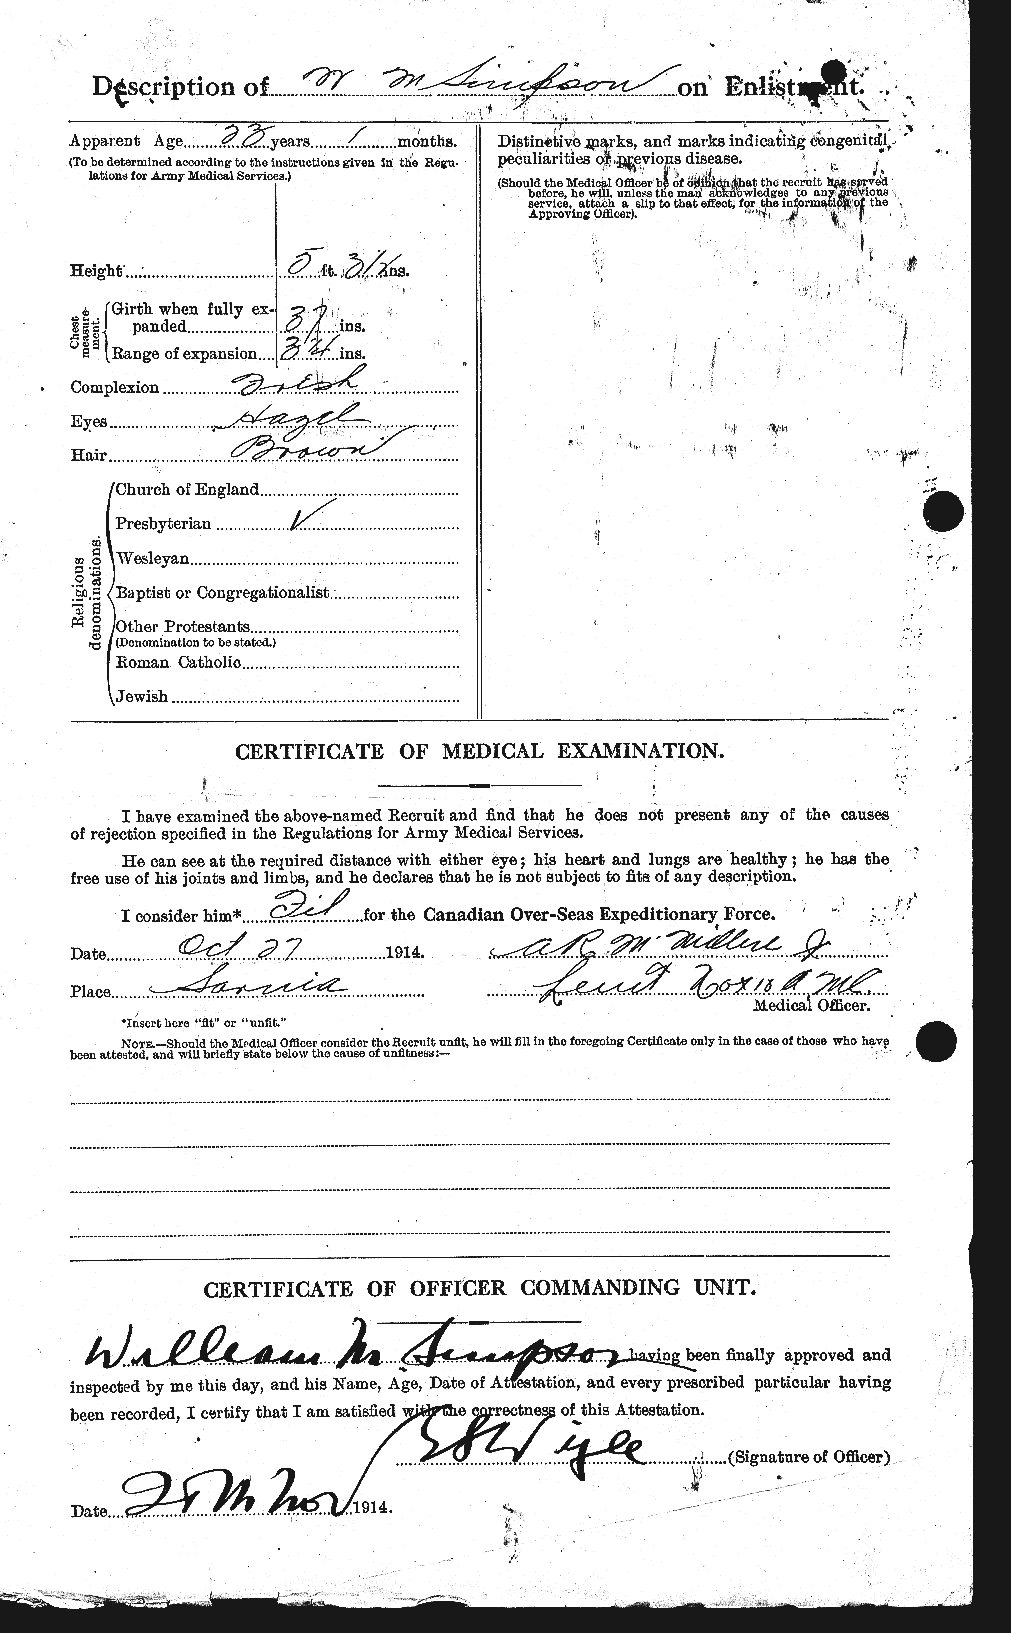 Description of W M Simpson on Enlistment.
Apparent Age 23 years 1 months.
(To be determined according to the instructions given in the Regu-
lations for Army Medical Services.)
Height 5 ft. 3 1/2 ins.
Chest measure-
ment.
Girth when fully ex-
panded 37 ins.
Range of expansion 34 ins.
Complexion Fresh
Eyes Hazel
Hair Brown
Religious
denominations.
Church of England
Presbyterian ✓
Wesleyan
Baptist or Congregationalist
Other Protestants
(Denomination to be stated.)
Roman Catholic
Jewish
Distinctive marks, and marks indicating congenital
peculiarities of previous disease.
(Should the Medical Officer be of opinion that the recruit has served
before, he will, unless the man acknowledges to any previous
service, attach a slip to that effect, for the information of the
Approving Officer).
CERTIFICATE OF MEDICAL EXAMINATION.
I have examined the above-named Recruit and find that he does not present any of the causes
of rejection specified in the Regulations for Army Medical Services.
He can see at the required distance with either eye; his heart and lungs are healthy; he has the
free use of his joints and limbs, and he declares that he is not subject to fits of any description.
I consider him* Fit for the Canadian Over-Seas Expeditionary Force.
Date Oct 27 1914.
Place Sarnia
Lieut A M C
Medical Officer.
*Insert here "fit" or "unfit."
NOTE.—Should the Medical Officer consider the Recruit unfit, he will fill in the foregoing Certificate only in the case of those who have
been attested, and will briefly state below the cause of unfitness:—
CERTIFICATE OF OFFICER COMMANDING UNIT.
William M Simpson having been finally approved and
inspected by me this day, and his Name, Age, Date of Attestation, and every prescribed particular having
been recorded, I certify that I am satisfied with the correctness of this Attestation.
Wigle (Signature of Officer)
Date Nov 1914.